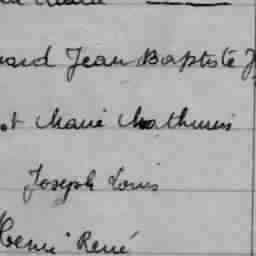 Jean Baptiste J
Marie Mathurin
Joseph Louis
Henri René